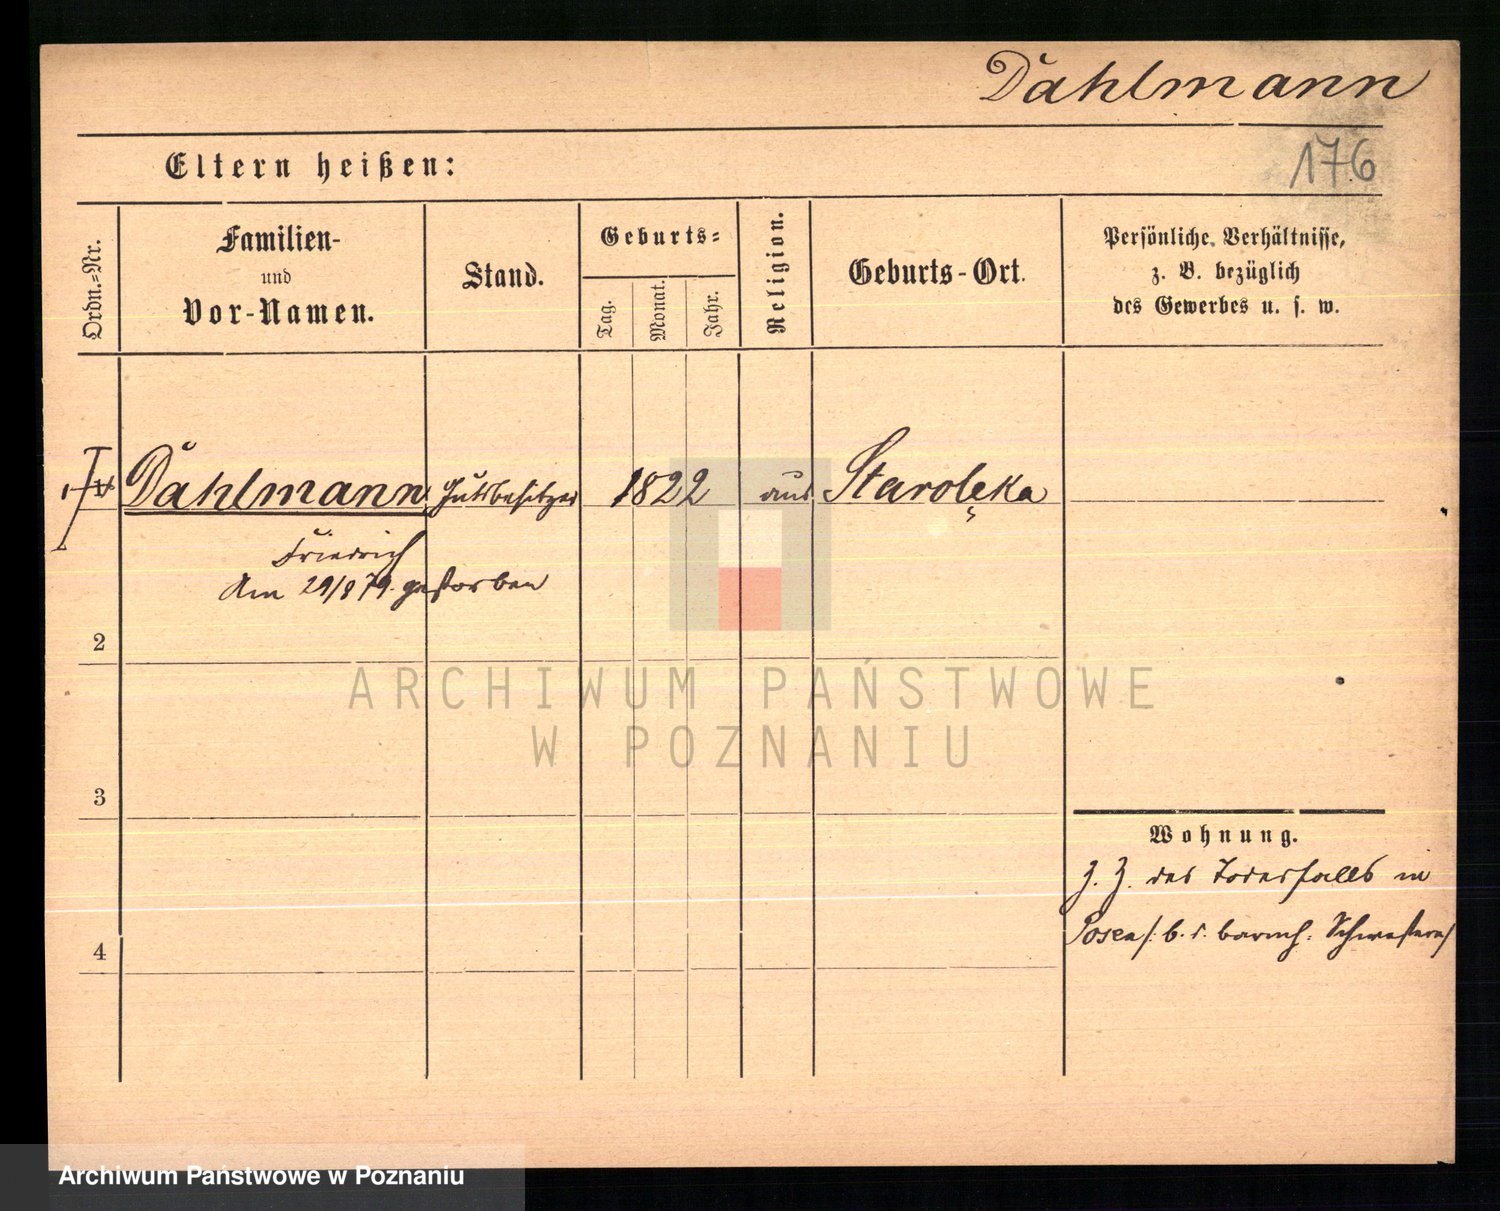 Dahlmann
176
Eltern heißen:
Ordn.=Nr.
Familien-
und
Vor-Namen.
Stand.
Geburts=
Tag.
Monat.
Jahr.
Religion.
Geburts-Ort.
Persönliche Verhältnisse,
z. B. bezüglich
des Gewerbes u. s. w.
Dahlmann Gutsbesitzer 1822 aus Starolęka
Friedrich
Am 29/8 79. gestorben
2
3
4
Wohnung.
z. Z. des Todesfalls in
Posen /: b. d. barmh: Schwestern/
ARCHIWUM PAŃSTWOWE
W POZNANIU
Archiwum Państwowe w Poznaniu